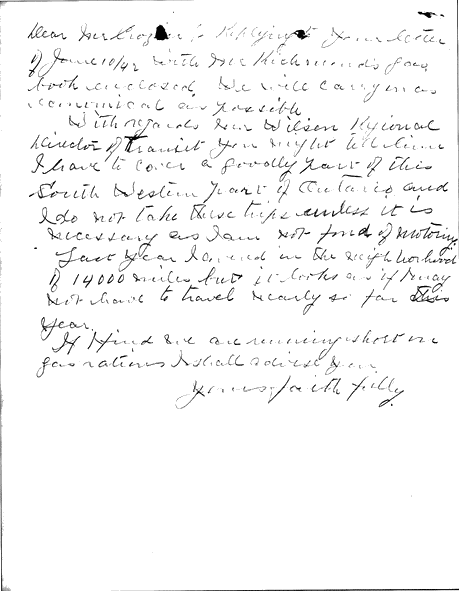 Dear Mr Replying to Your letter
of June 10/42 with Mr Richmond's gas
book enclosed. We will carry on as
economical as possible
With regards Mr Wilson Regional
Director of Transit You might tell him
I have to cover a goodly part of this
South Western part of Ontario and
I do not take these trips unless it is
necessary as I am not fond of motoring.
Last Year I moved in the neighborhood
of 14000 miles but it looks as if I may
not have to travel nearly so far this
Year.
If I find we are running short on
gas rations I shall advise You
Yours faithfully